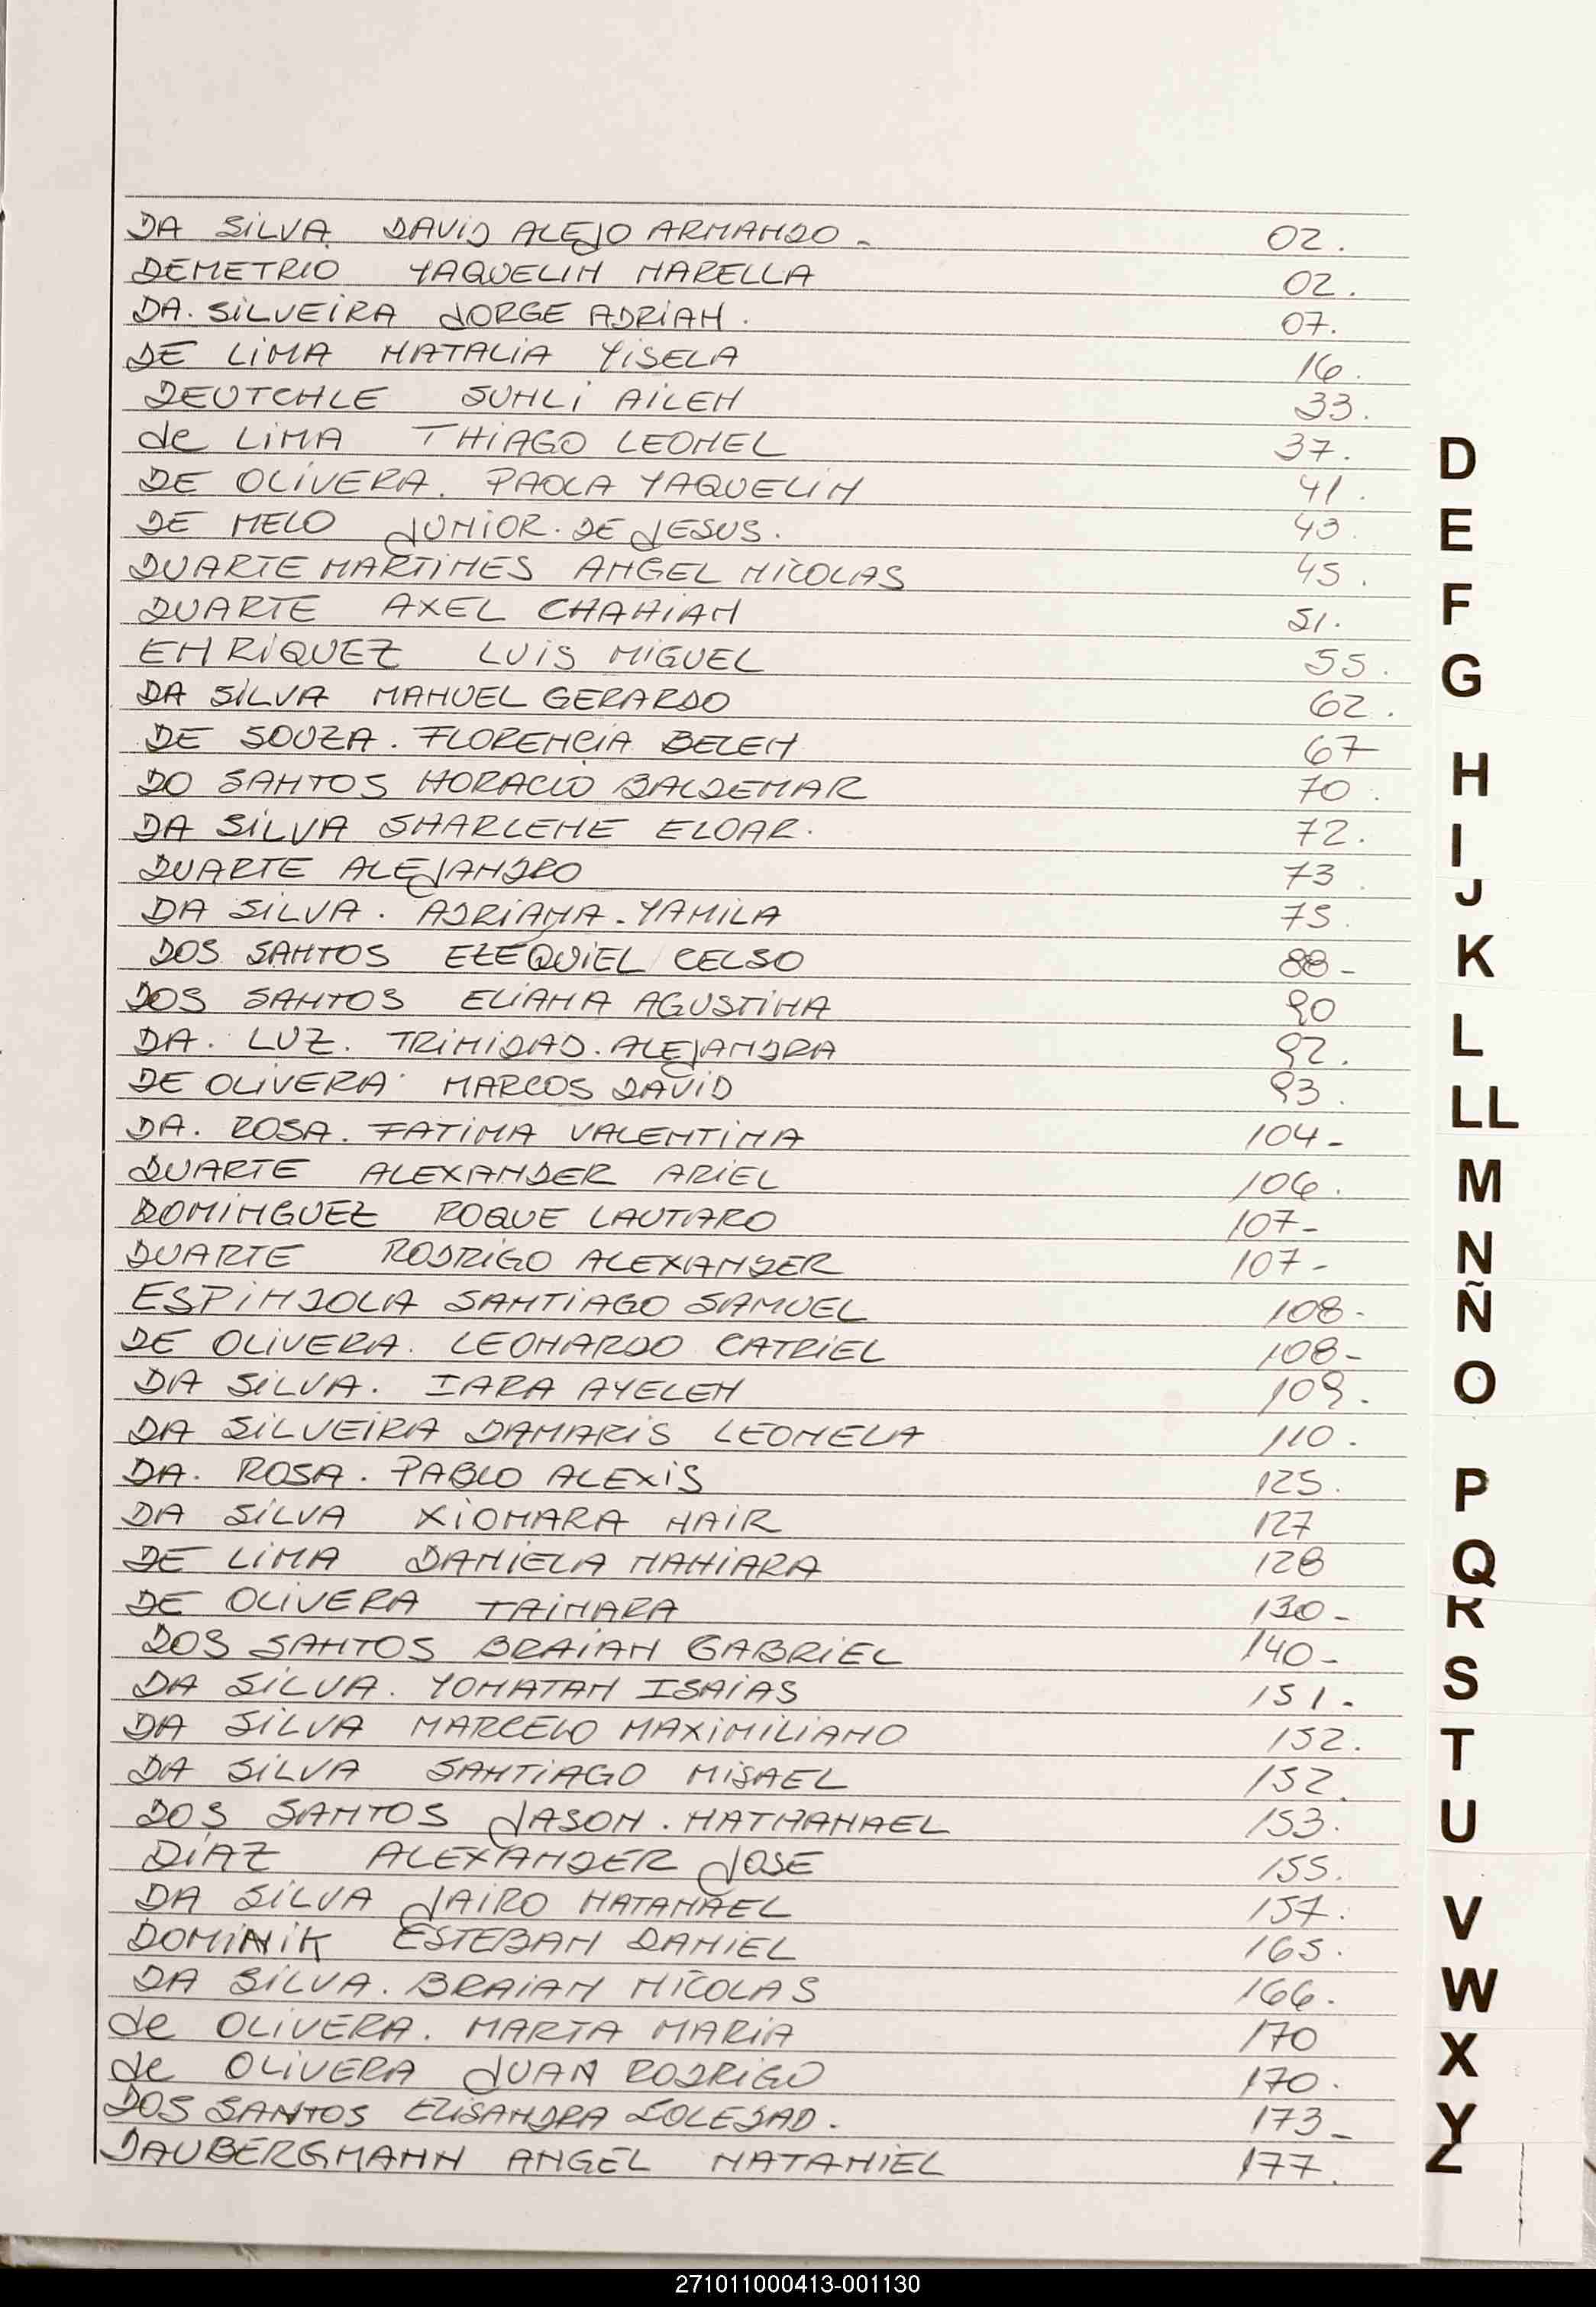 DA SILVA DAVID ALEJO ARMANDO - 02.
DEMETRIO YAQUELIN MARELLA 02.
DA. SILVEIRA JORGE ADRIAN. 07.
DE LIMA NATALIA YISELA 16.
DEUTCHLE SUNLI AILEN 33.
de LIMA THIAGO LEONEL 37.
DE OLIVERA. PAOLA YAQUELIN 41.
DE MELO JUNIOR. DE JESUS. 43.
DUARTE MARTINES ANGEL NICOLAS 45.
DUARTE AXEL CHANIAN 51.
ENRIQUEZ LUIS MIGUEL 55.
DA SILVA MANUEL GERARDO 62.
DE SOUZA. FLORENCIA BELEN 67
DO SANTOS HORACIO BALDEMAR 70.
DA SILVA SHARLENE ELOAR. 72.
DUARTE ALEJANDRO 73.
DA SILVA. ADRIANA-YAMILA 75.
DOS SANTOS EZEQUIEL CELSO 88-
DOS SANTOS ELIANA AGUSTINA 90
DA. LUZ. TRINIDAD. ALEJANDRA 92.
DE OLIVERA MARCOS DAVID 93.
DA. ROSA. FATIMA VALENTINA 104-
DUARTE ALEXANDER ARIEL 106.
DOMINGUEZ ROQUE LAUTARO 107-
DUARTE RODRIGO ALEXANDER 107-
ESPINDOLA SANTIAGO SAMUEL 108-
DE OLIVERA. LEONARDO CATRIEL 108-
DA SILVA. IARA AYELEN 109.
DA SILVEIRA DAMARIS LEONELA 110.
DA. ROSA. PABLO ALEXIS 125.
DA SILVA XIOMARA NAIR 127
DE LIMA DANIELA NAHIARA 128
DE OLIVERA TAINARA 130-
DOS SANTOS BRAIAN GABRIEL 140-
DA SILVA. YONATAN ISAIAS 151-
DA SILVA MARCELO MAXIMILIANO 152.
DA SILVA SANTIAGO MISAEL 152.
DOS SANTOS JASON. NATHANAEL 153.
DÍAZ ALEXANDER JOSE 155.
DA SILVA JAIRO NATANAEL 157.
DOMINIK ESTEBAN DANIEL 165.
DA SILVA. BRAIAN NICOLAS 166.
de OLIVERA. MARTA MARIA 170
de OLIVERA JUAN RODRIGO 170.
DOS SANTOS ELISANDRA SOLEDAD. 173-
DAUBERGMANN ANGEL NATANIEL 177.
D
E
F
G
H
I
J
K
L
LL
M
N
Ñ
O
P
Q
R
S
T
U
V
W
X
Y
Z
271011000413-001130